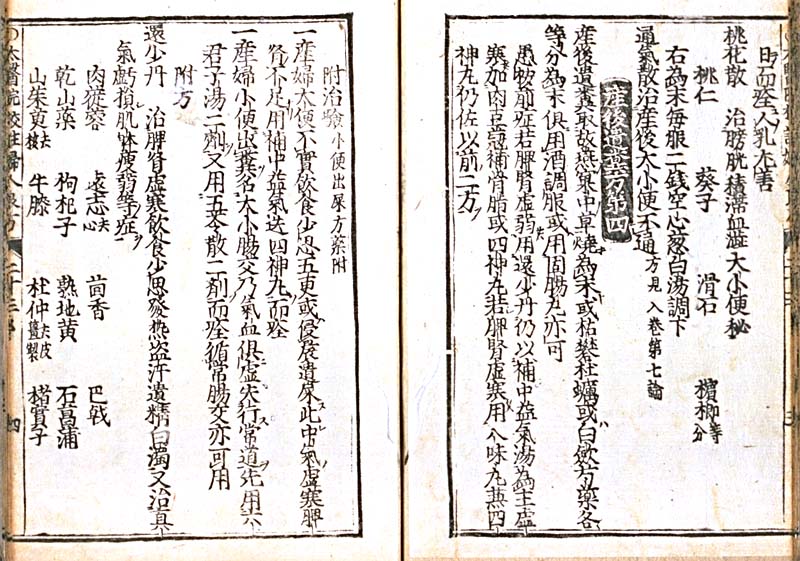 日而痊人乳尤善
桃花散　治膀胱積滯血澁大小便秘
桃仁　葵子　滑石　檳榔等分
右為末每服二錢空心葱白湯調下
通氣散治産後大小便不通方見八卷第七論
産後遺糞方第四
産後遺糞取故燕窠中草燒為末或枯礬牡蠣或白歛芍藥各
等分為末俱用酒調服或用固腸丸亦可
愚按前症若脾腎虛弱用還少丹仍以補中益氣湯為主虛
寒加肉豆蔻補骨脂或四神丸若脾腎虛寒用八味丸兼四
神丸仍佐以前二方
附治驗小便出屎方藥附
一産婦大便不實飲食少思五更或侵晨遺屎此中氣虛寒脾
腎不足用補中益氣送四神丸而痊
一産婦小便出糞名大小腸交乃氣血俱虛失行常道先用六
君子湯二劑又用五苓散二劑而痊循常腸交亦可用
附方
還少丹　治脾腎虛寒飲食少思發熱盜汗遺精白濁又治真
氣虧損肌体瘦弱等症
肉蓯蓉　遠志去心　茴香　巴戟
乾山藥　枸杞子　熟地黄　石菖蒲
山茱萸去核　牛膝　杜仲去皮薑製　楮實子
〇太醫院校註婦人良方　二十三卷　四